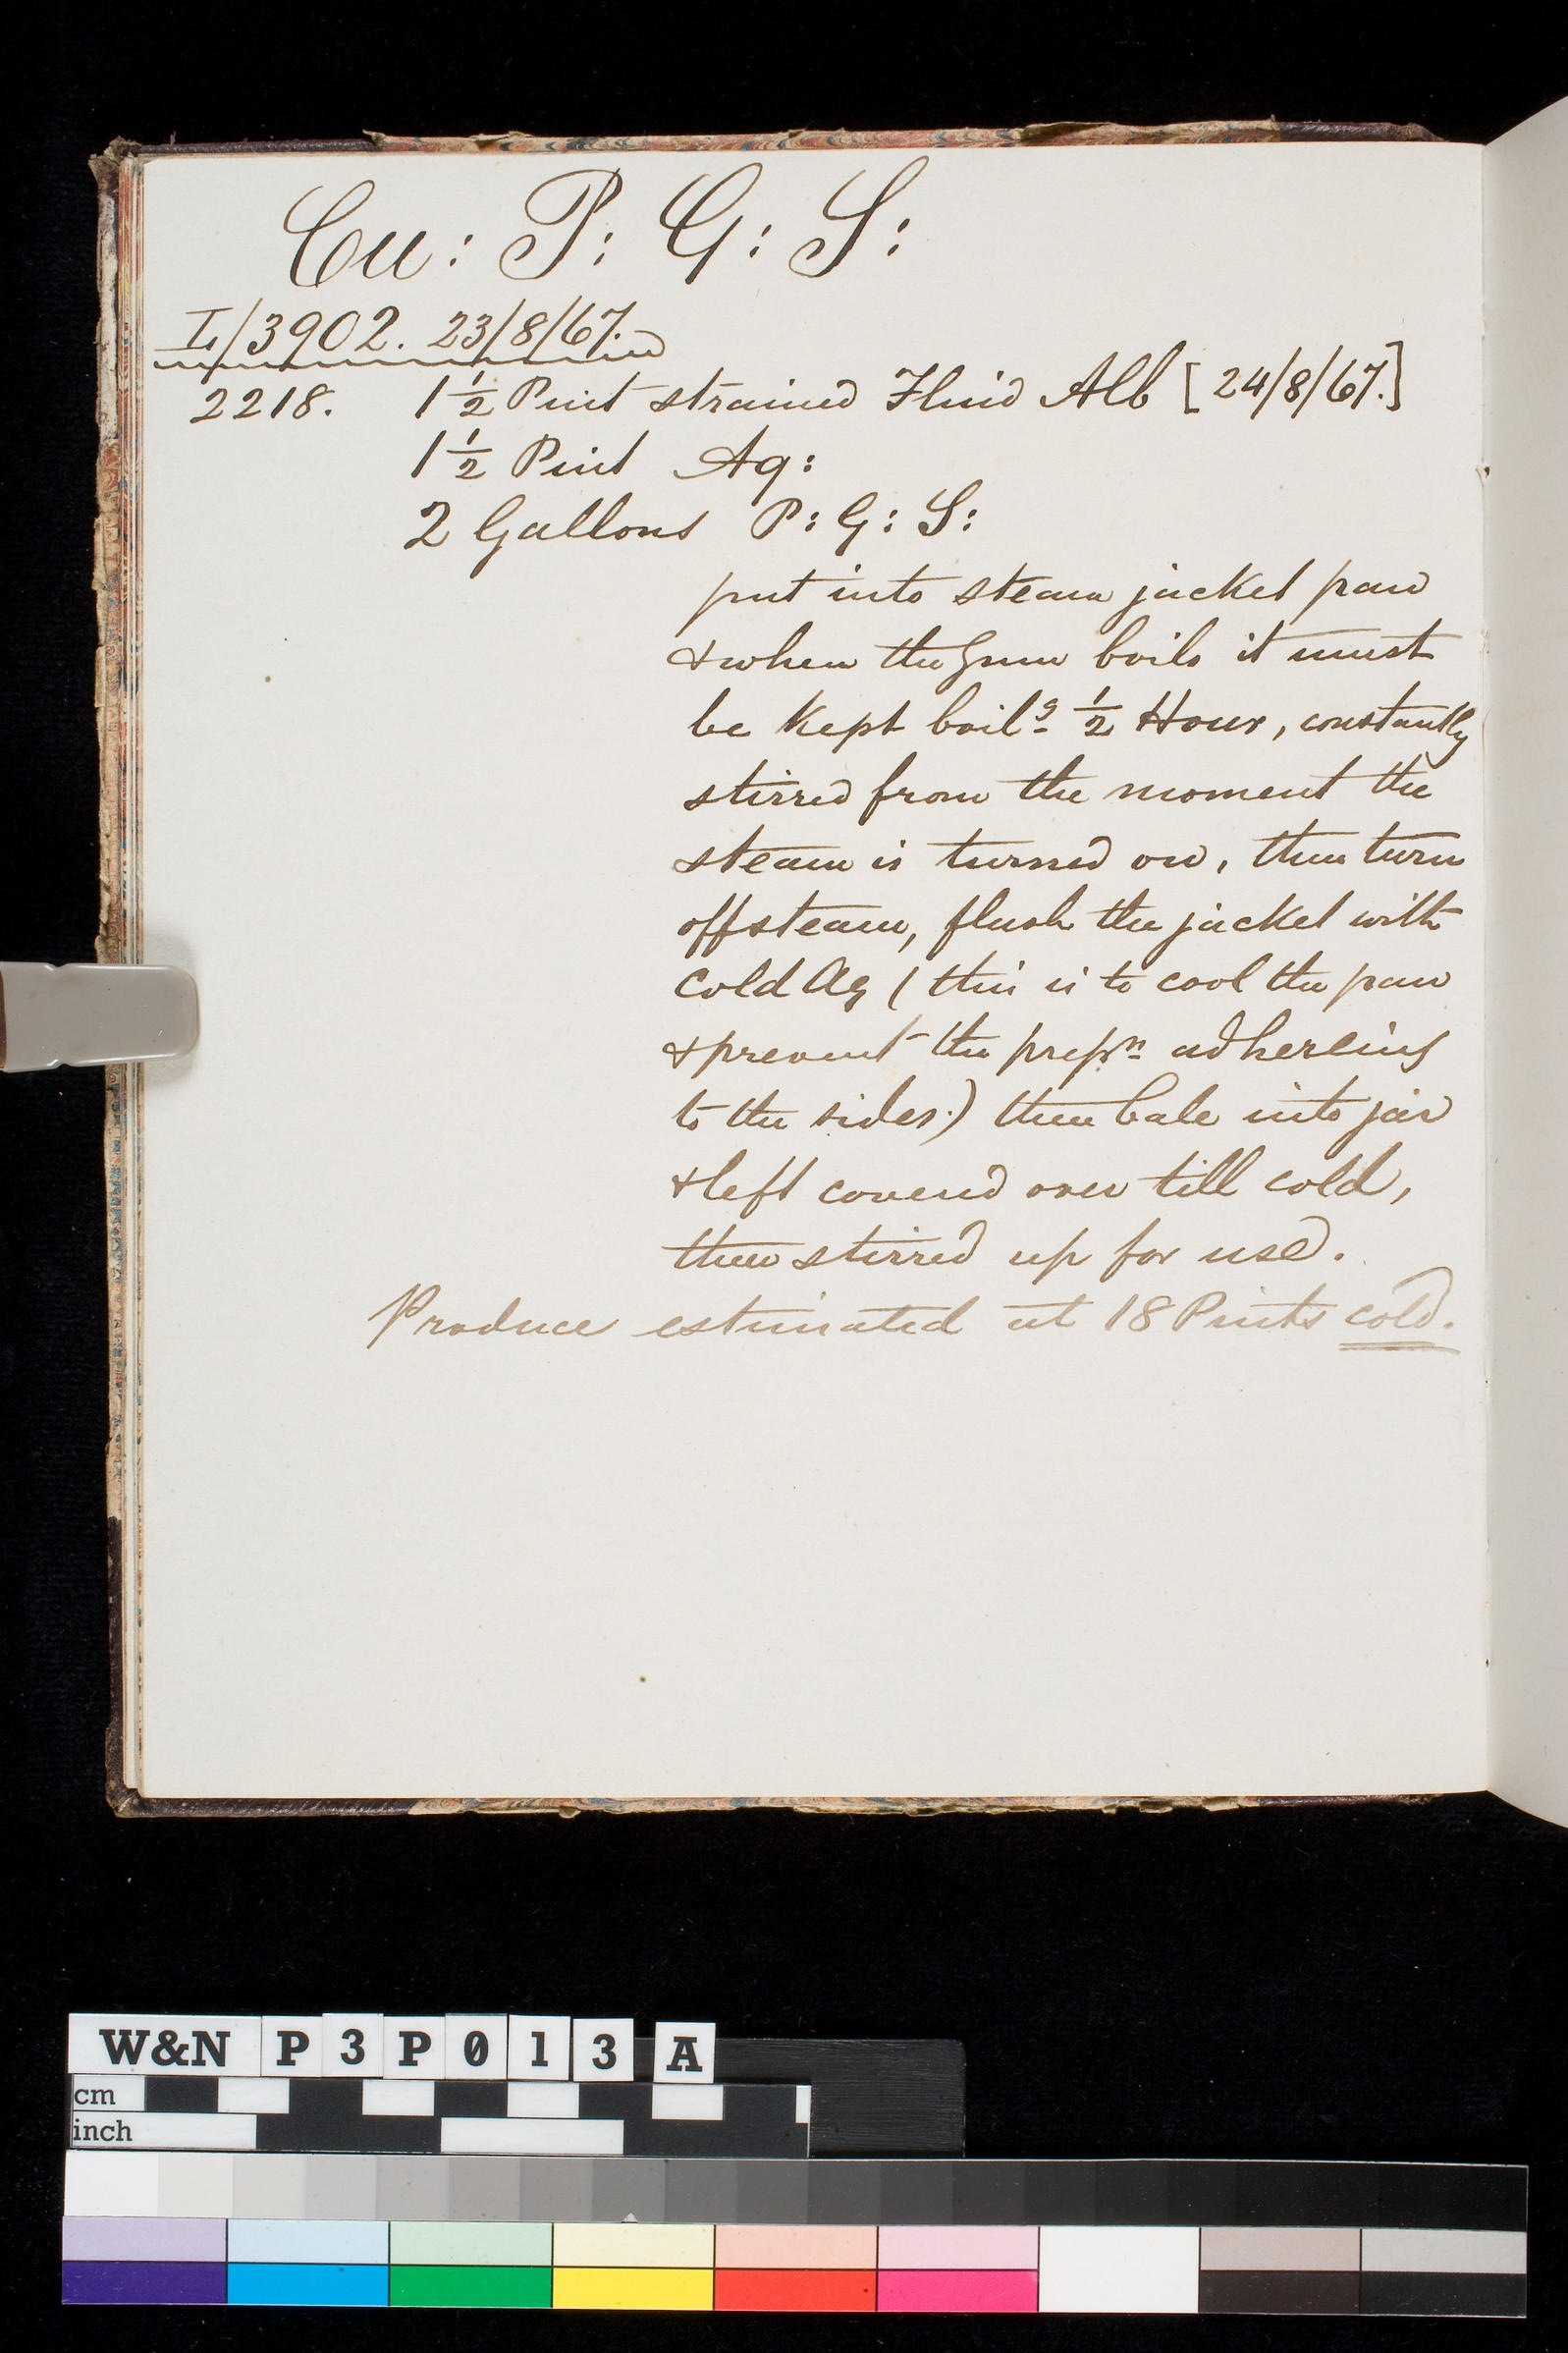 Cu: P: G: S:
L/3902. 23/8/67.
2218. 1½ Pint strained Fluid Alb [24/8/67.]
1½ Pint Aq:
2 Gallons P: G: S:
put into steam jacket pan
& when the Gum boils it must
be kept boilᵍ ½ Hour, constantly
stirred from the moment the
steam is turned on, then turn
off steam, flush the jacket with
cold Aq (this is to cool the pan
& prevent the prepⁿ adhereing
to the sides.) then bale into jar
& left covered over till cold,
then stirred up for use.
Produce estimated at 18 Pints cold.
W&N P3P013A
cm
inch